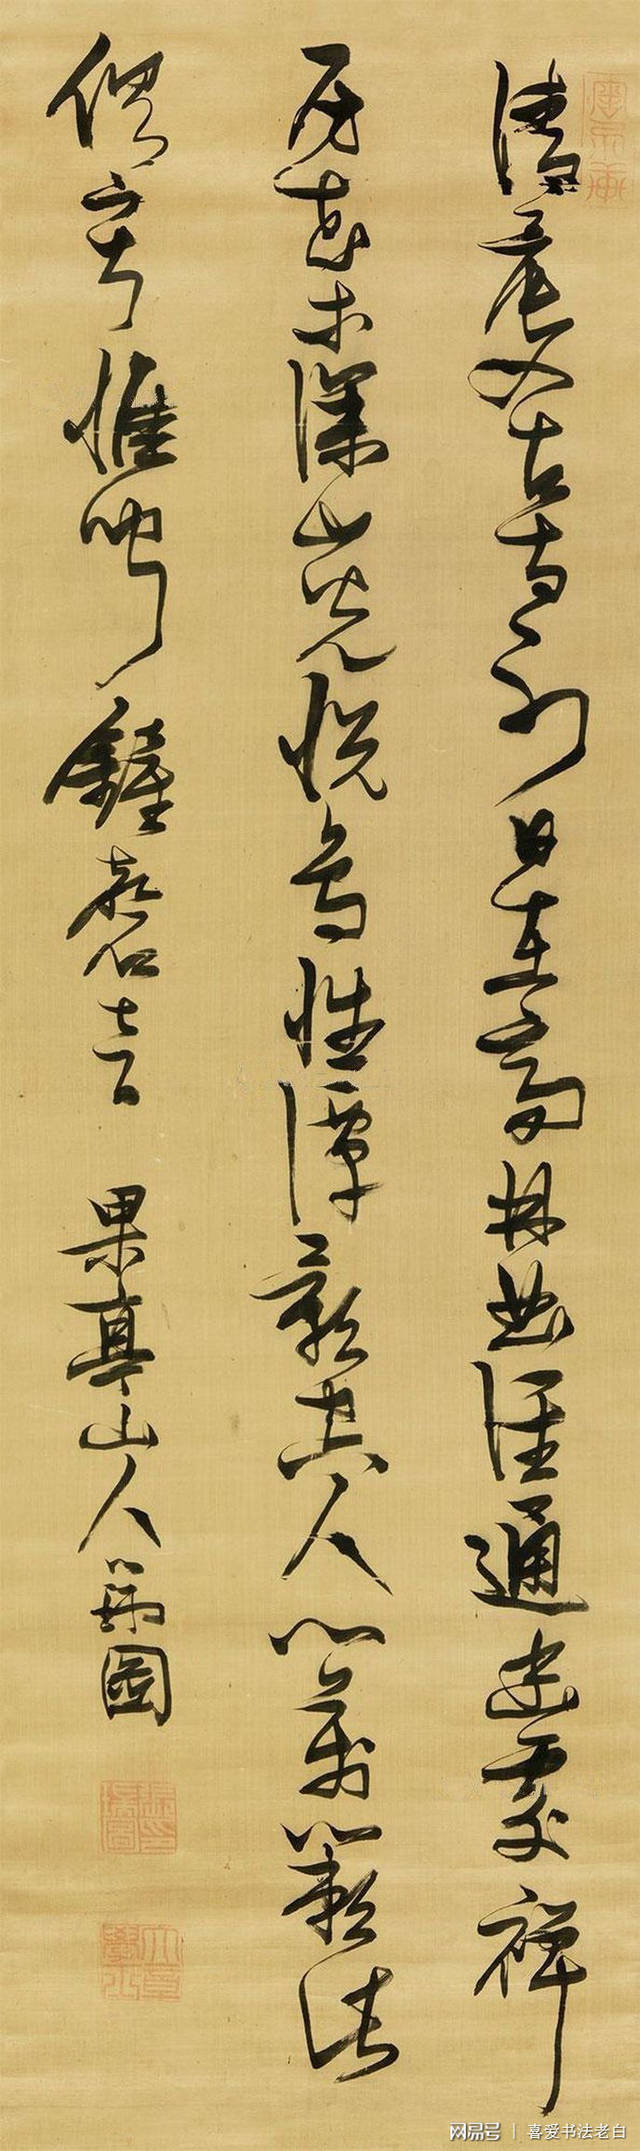 清晨入古寺初日照高林曲径通幽处禅
房花木深山光悦鸟性潭影空人心万籁法
俱寂惟听钟磬音 果亭山人瑞图
网易号 | 喜爱书法老白